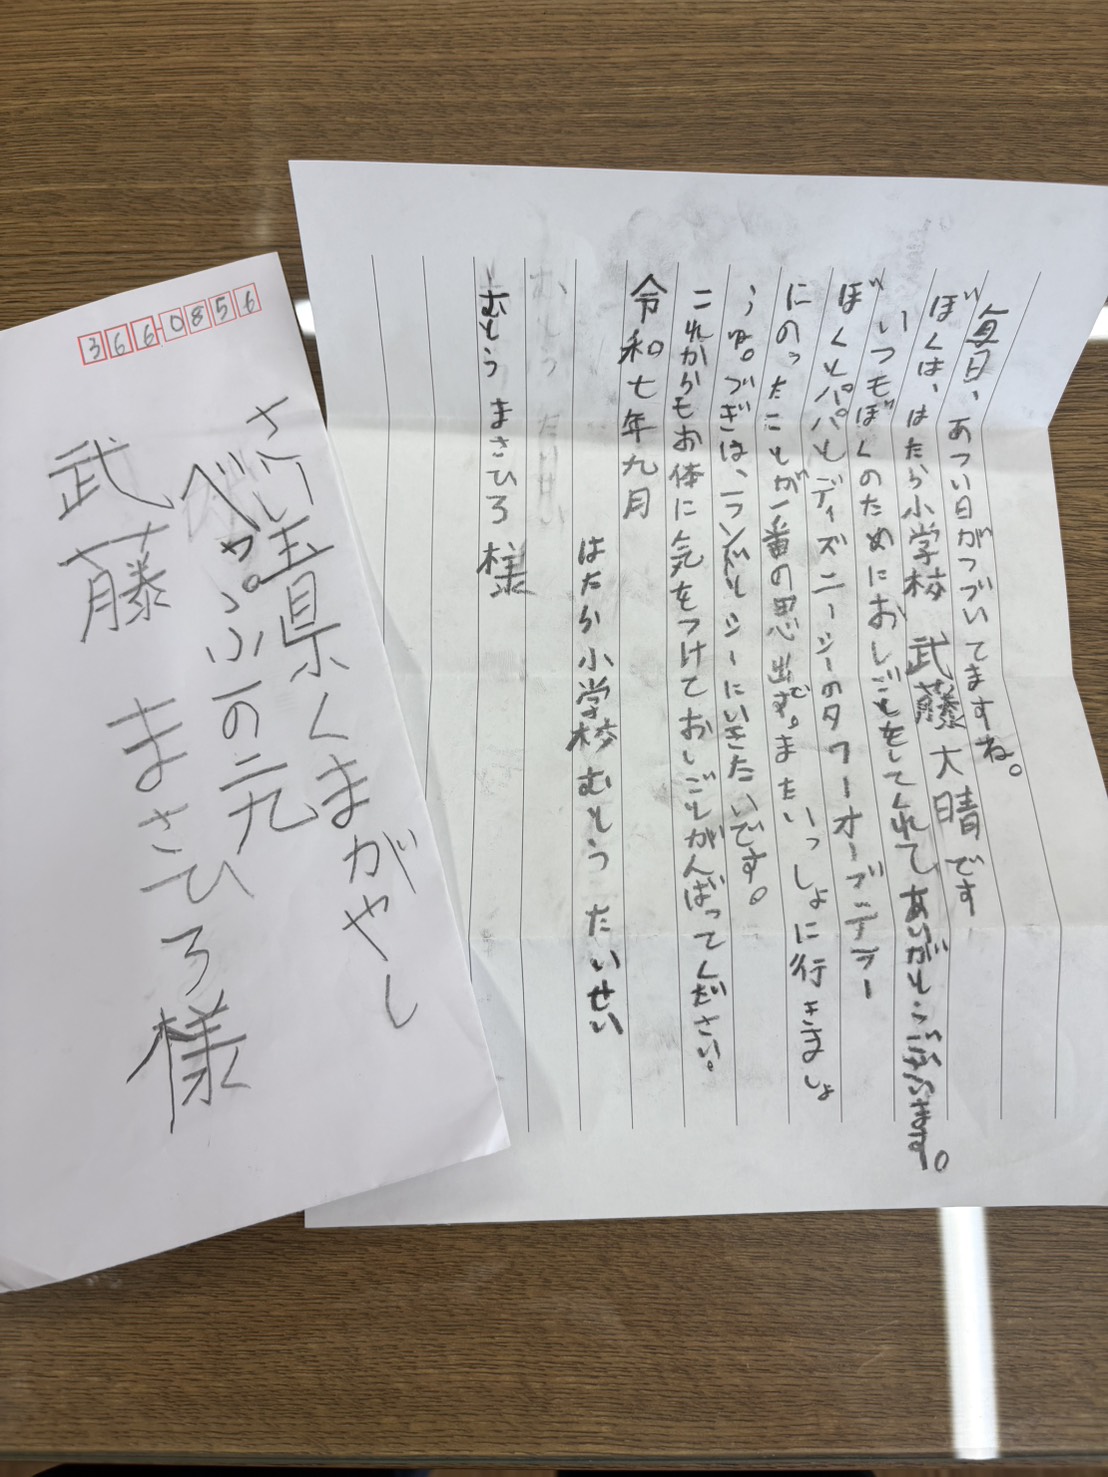 毎日、あつい日がつづいてますね。
ぼくは、はたら小学校 武藤大晴です
いつもぼくのためにおしごとをしてくれてありがとうございます。
ぼくとパパとディズニーシーのタワーオーブテラー
にのったことが一番の思い出です。またいっしょに行きましょ
うね。つぎは、ランドとシーにいきたいです。
これからもお体に気をつけておしごとがんばってください。
令和七年九月
はたら小学校 むとう たいせい
むとう まさひろ 様
366-0856
さい玉県くまがやし
べっぷ一の二九
武藤 まさひろ様